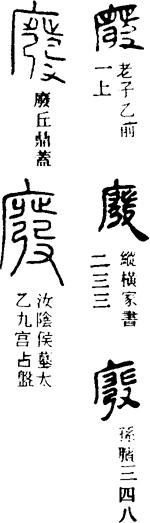 廢
老子乙前
一上
廢
縱橫家書
二三三
廢
孫臏三四八
廢
廢丘鼎蓋
廢
汝陰侯墓太
乙九宫占盤